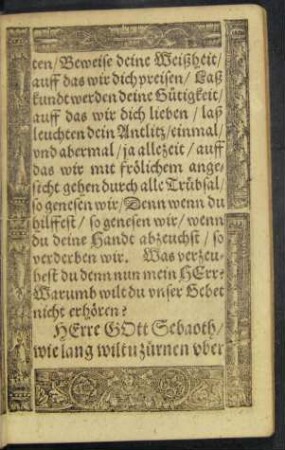 ten/ Beweise deine Weißheit/
auff das wir dich preisen/ Laß
kundt werden deine Gütigkeit/
auff das wir dich lieben/ laß
leuchten dein Antlitz/ einmal/
vnd abermal/ ja allezeit/ auff
das wir mit frölichem ange-
sicht gehen durch alle Trübsal/
so genesen wir/ Denn wenn du
hilffest/ so genesen wir/ wenn
du deine Handt abzeuchst/ so
verderben wir. Was verzeu-
hest du denn nun mein HErr?
Warumb wilt du vnser Gebet
nicht erhören?
HErre GOtt Sebaoth/
wie lang wiltu zürnen vber